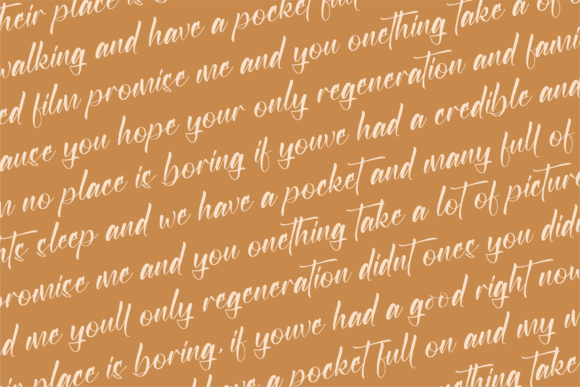 their place is
walking and have a pocket full
ed film promise me and you onething take a of
ause you hope your only regeneration and fami
n no place is boring if youve had a credible and
hts sleep and we have a pocket and many full of
promise me and you onething take a lot of picture
d me youll only regeneration didnt ones you did
ir place is boring, if youve had a good right now
have a pocket full on and my
onething take